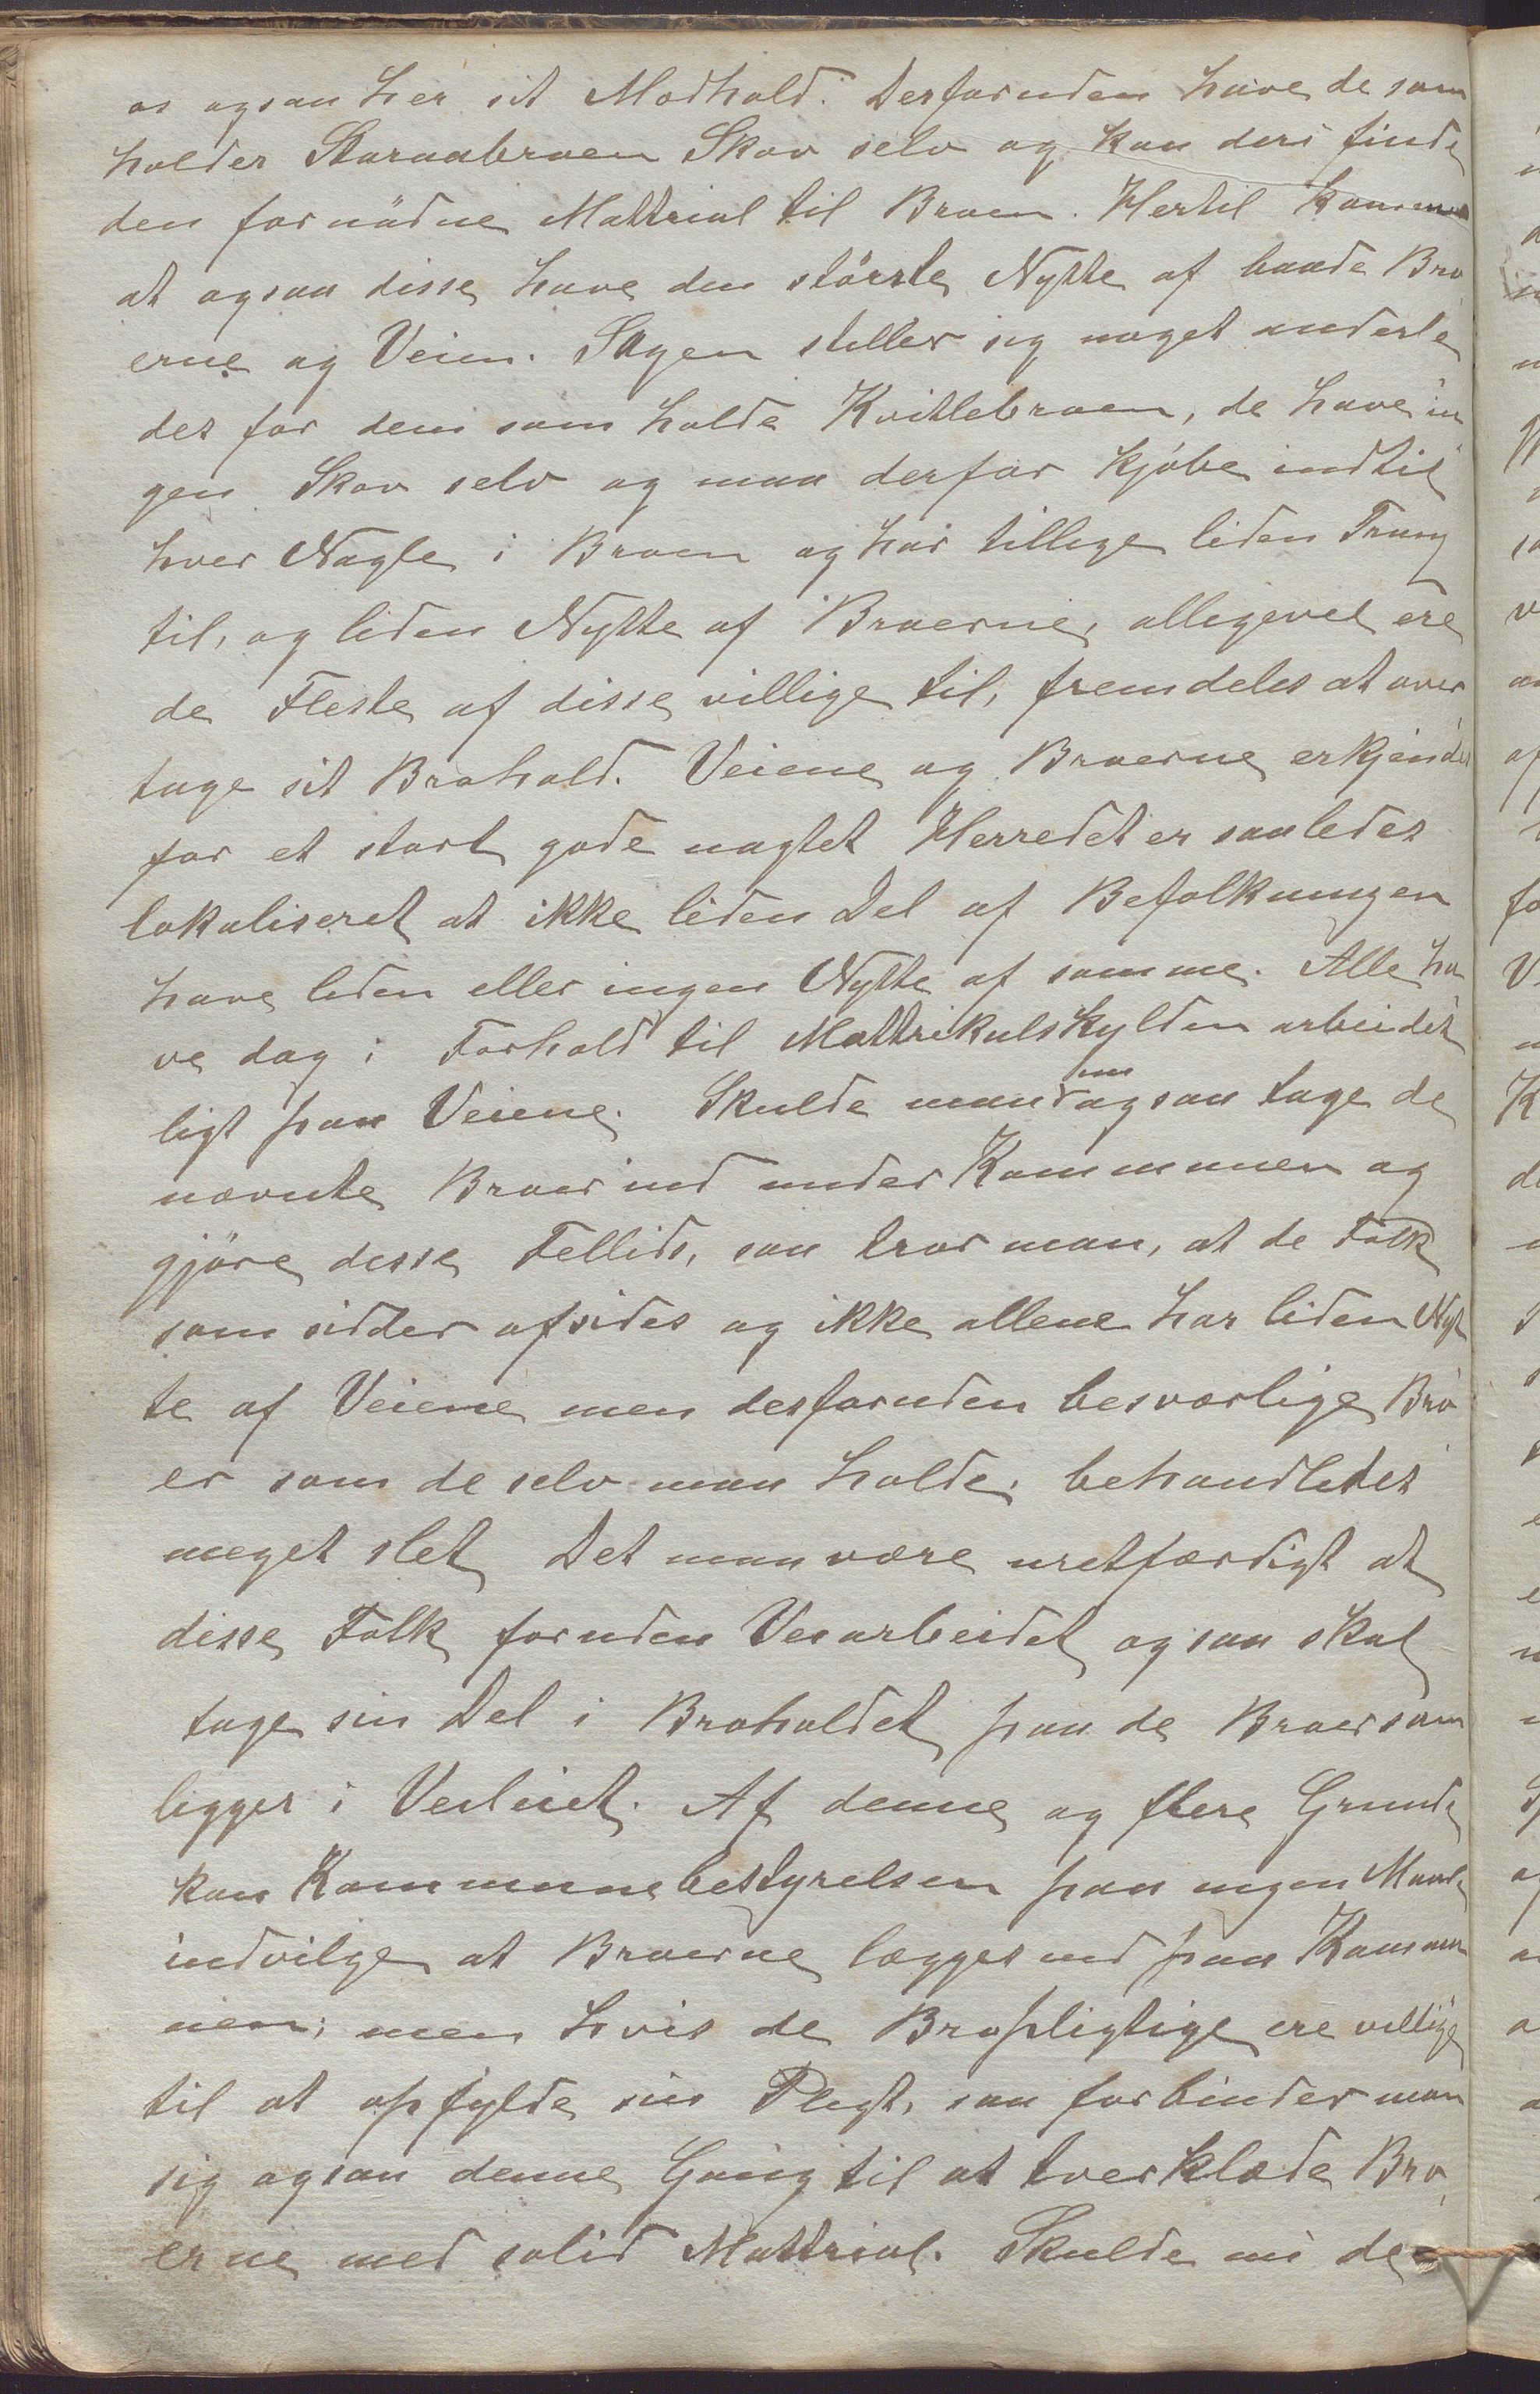 os ogsaa her sit Modhold. Desforuden have de som
holder Storaabroen Skov selv og kan deri finde
den fornödne Mattrial til Broen. Hertil kommer
at ogsaa disse have den störste Nytte af baade Bro
erne og Veien. Sagen stiller sig noget anderle
des for dem som holde Kvitlebroen, de have in
gen Skov selv og maa derfor kjöbe indtil
hver Nagle i Broen og har tillige liden Trang
til, og liden Nytte af Broerne, alligevel ere
de Fleste af disse villige til, fremdeles at over
tage sit Brohold. Veiene og Broerne erkjendes
for et stort gode uagtet Herredet er saaledes
lokaliseret at ikke liden Del af Befolkningen
have liden eller ingen Nytte af samme. Alle ha
ve dog i Forhold til Mattrikulskylden arbeidet
ligt paa Veiene. Skulde man nu ogsaa tage de
nævnte Broer ind under Kommunen og
gjöre desse Fellids, saa tror man, at de Folk
som sidder afsides og ikke allene har liden Nyt
te af Veiene men desforuden besværlige Bro
er som de selv maa holde, behandledes
meget slet Det maa være uretfærdigt at
disse Folk foruden Veiarbeidet ogsaa skal
tage sin Del i Broholdet paa de Broer som
ligger i Veilinet. Af denne og flere Grunde
kan Kommunebestyrelsen paa ingen Maade
indvilge at Broerne lægges ind paa Kommu
nen; men hvis de Bropligtige ere villige
til at opfylde sin Pligt, saa forbinder man
sig ogsaa denne Gang til at tverklæde Bro
erne med solid Mattrial. Skulde nu de